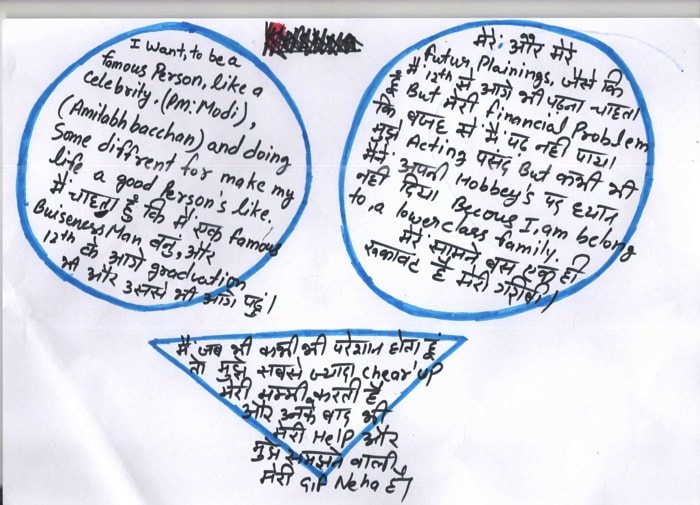 I want, to be a
famous Person, like a
celebrity. (Pm: Modi),
(Amilabh bacchan) and doing
Some diffrent for make my
life a good Person's like.
मैं चाहता हूँ कि मैं एक famous
Buiseness Man बनु, और
12th के आगे graduation
भी और उससे भी आगे पढ़ूं।
मेरे और मेरे
Futur Plainings, जैसे कि
मैं 12th से आगे भी पढ़ना चाहता
हूँ But मेरी financial Problem
कि वजह से मैं पढ़ नही पाया
मुझे Acting पसंद But कभी भी
मैंने अपनी Hobbey's पर ध्यान
नही दिया। Becous I, am belong
to, a lowerclass family.
मेरे सामने बस एक ही
रूकावट है मेरी गरीबी।
मैं जब भी कभी भी परेशान होता हूं
तो मुझे सबसे ज्यादा chear up
मेरी मम्मी करती है
और उनके बाद भी
मेरी Help और
मुझे समझने वाली
मेरी GIF Neha है।